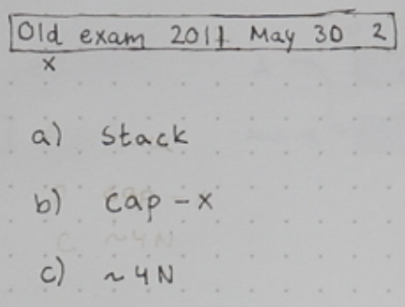 Old exam 2011 May 30 2
x
a) stack
b) cap - x
c) ~ 4N